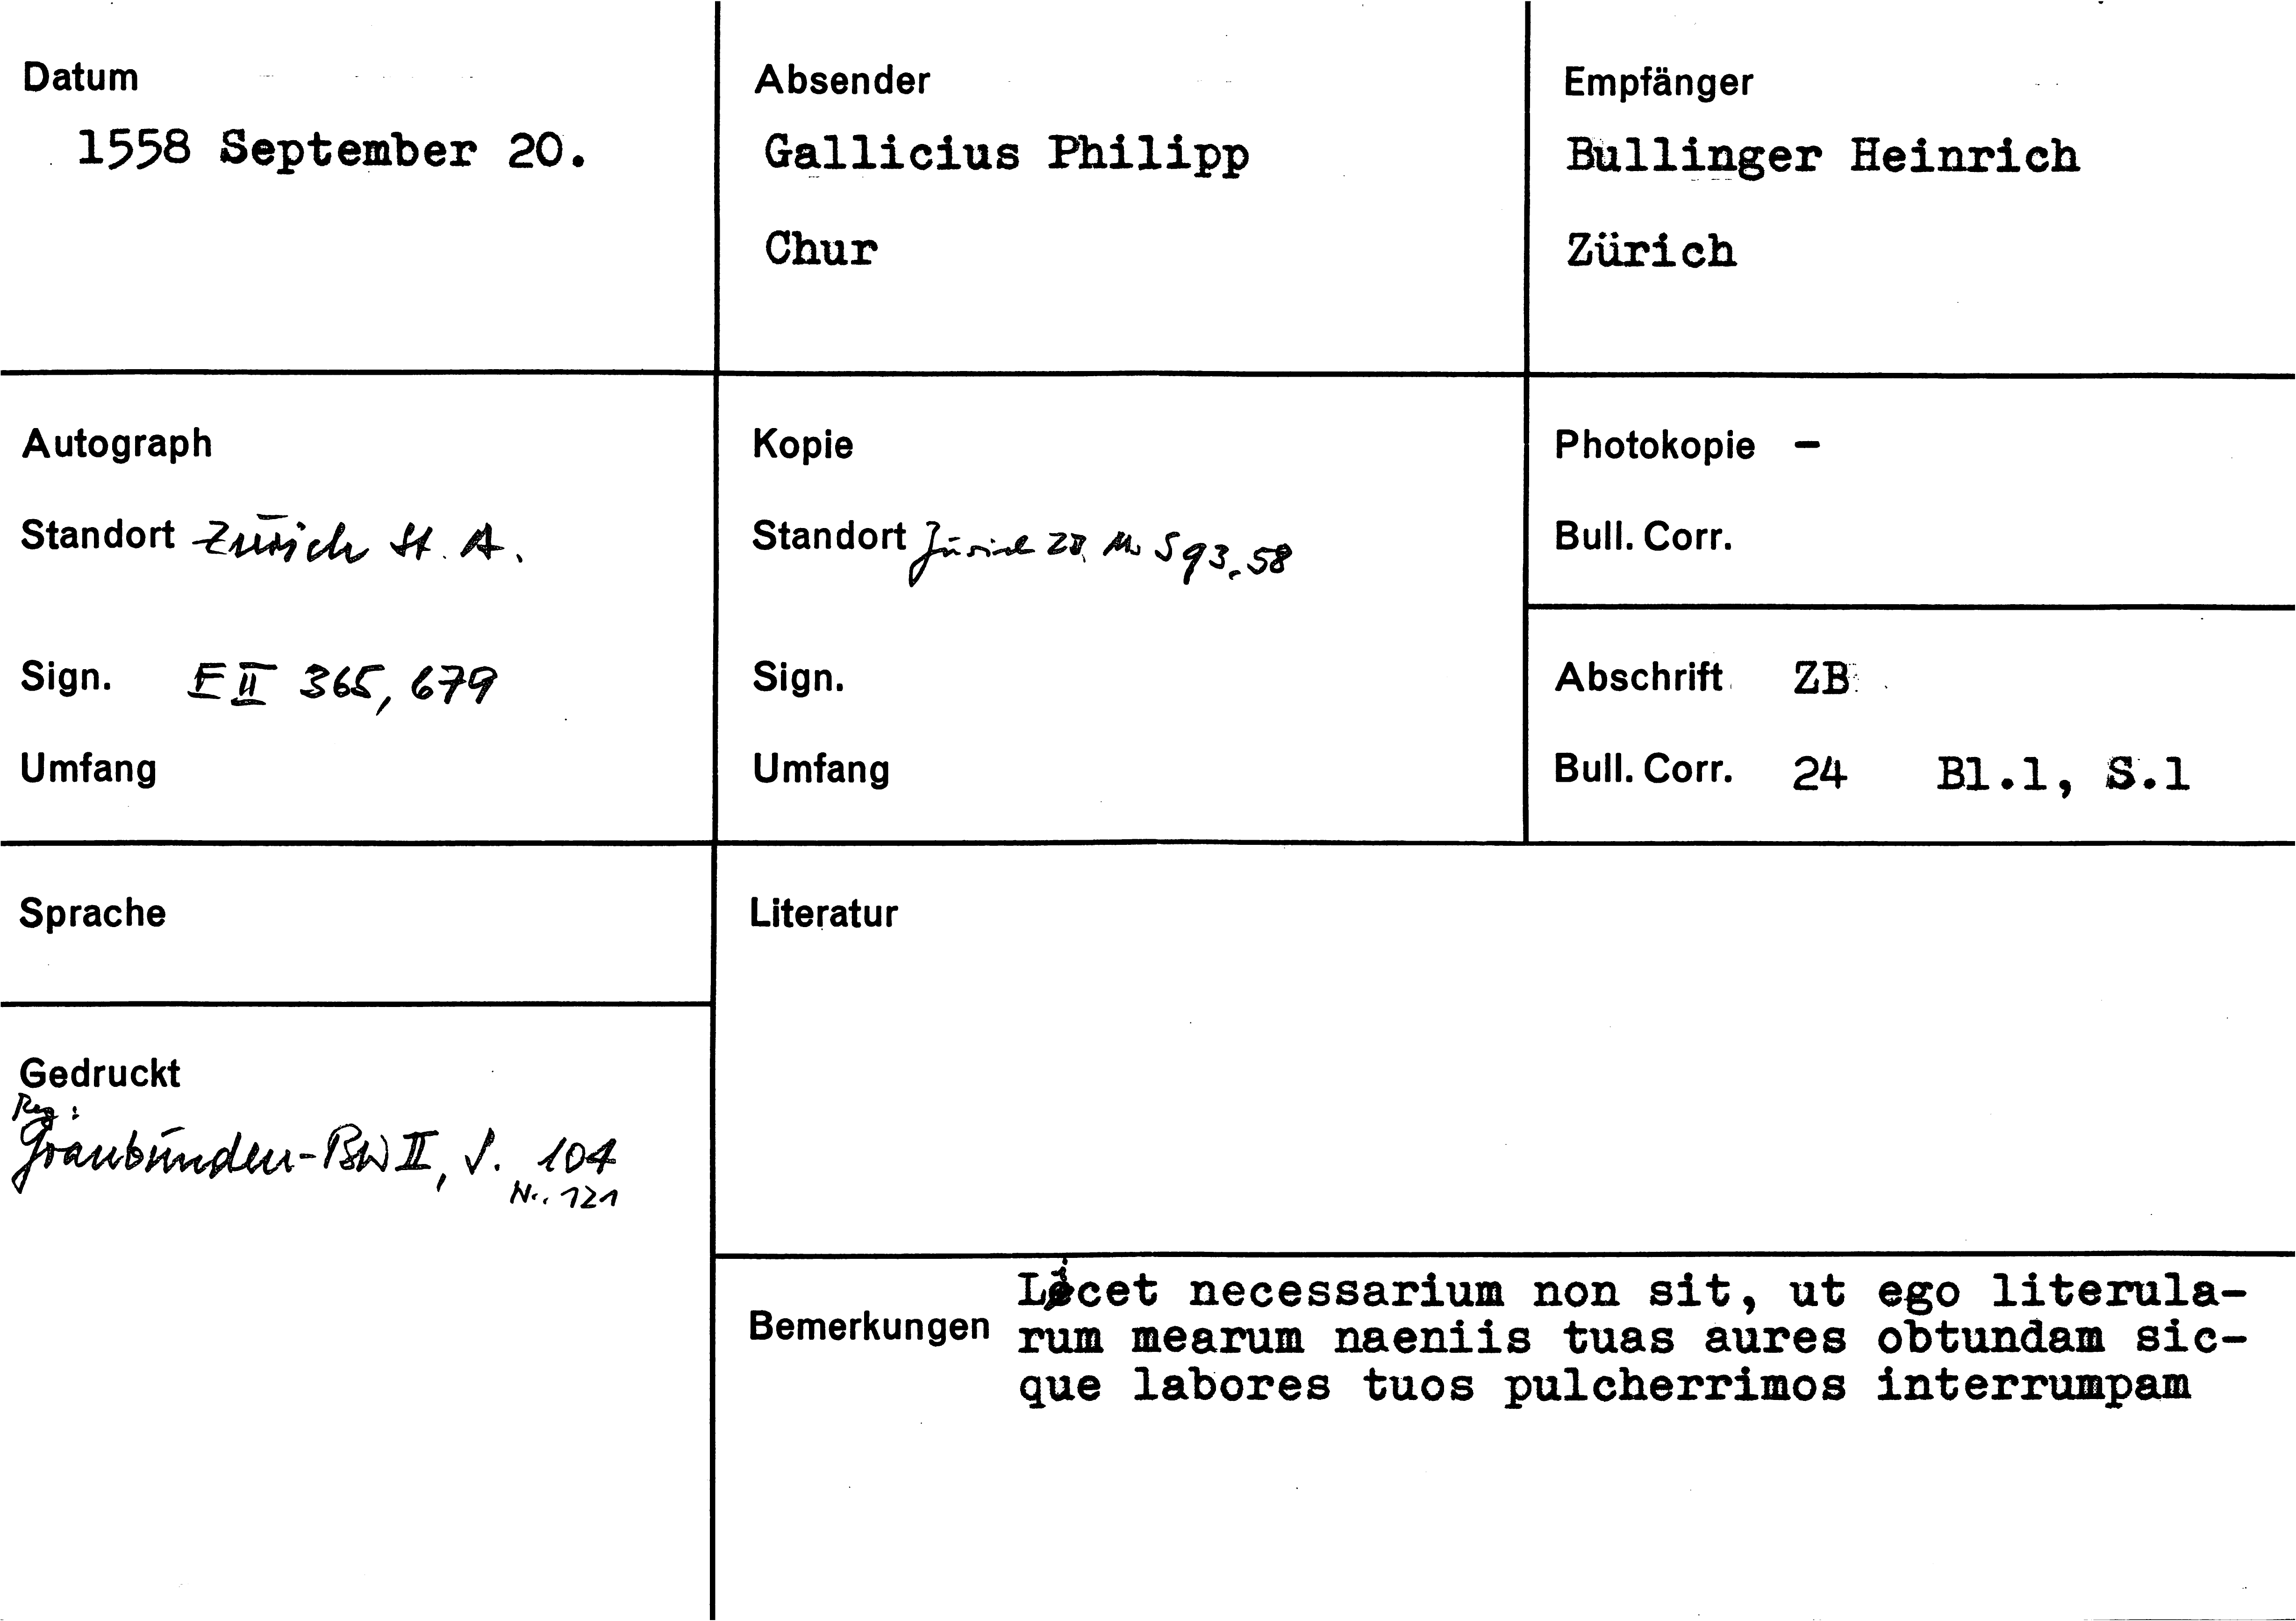 Datum
1558 September 20.
Absender
Gallicius Philipp
Chur
Empfänger
Bullinger Heinrich
Zürich
Autograph
Standort Zürich St. A.
Sign. E II 365, 679
Umfang
Kopie
Standort Zürich ZB, Ms S 93, 58
Sign.
Umfang
Photokopie –
Bull. Corr.
Abschrift ZB
Bull. Corr. 24 Bl.1, S.1
Sprache
Gedruckt
Reg:
Graubünden-BW II, S. 104
Nr. 121
Literatur
Bemerkungen
Licet necessarium non sit, ut ego literula-
rum mearum naeniis tuas aures obtundam sic-
que labores tuos pulcherrimos interrumpam